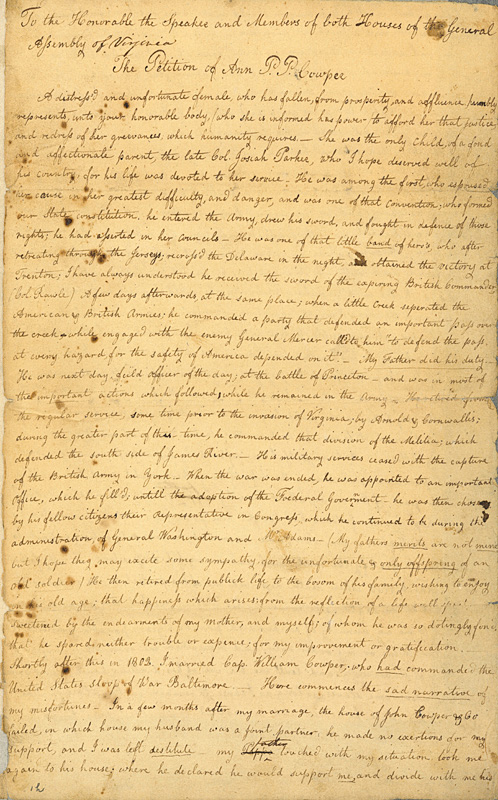 To the Honorable the Speaker and Members of both Houses of the General
Assembly of Virginia
The Petition of Ann P. P. Cowper
A distress'd and unfortunate female, who has fallen, from prosperity, and affluence, humbly
represents, unto your honorable body, (who she is informed has power to afford her that justice,
and redress of her grievances, which humanity requires. — She was the only Child, of a fond
and affectionate parent, the late Col. Josiah Parker, who I hope deserved well of
his country, for his life was devoted to her service — He was among the first, who espoused
her cause in her greatest difficulty, and danger, and was one of that Convention, who formed
our State constitution, he entered the Army, drew his sword, and fought in defence of those
rights, he had asserted in her councils — He was one of that little band of hero's, who after
retreating through the Jerseys, recross'd the Delaware in the night, and obtained the victory at
Trenton; I have always understood he received the sword of the expiring British Commander
(Col. Rawle.) A few days afterwards, at the same place; when a little Creek seperated the
American & British Armies; he commanded a party that defended an important pass over
the creek — while engaged with the enemy General Mercer call'd to him "to defend the pass
at every hazard, for the safety of America depended on it" — My Father did his duty —
He was next day, feild officer of the day; at the battle of Princeton — and was in most of
the important actions which followed, while he remained in the Army — He retired from
the regular service, some time prior to the invasion of Virginia, by Arnold & Cornwallis;
during the greater part of this time, he commanded that division of the Militia; which
defended the south side of James River. — His military services ceased with the capture
of the British Army in York — When the war was ended, he was appointed to an important
Office, which he fill'd; untill the adoption of the Foederal Goverment — he was then chosen
by his fellow citizens their Representative in Congress, which he continued to be during the
administration, of General Washington and Mr. Adams — (My fathers merits are not mine
but I hope they may excite some sympathy, for the unfortunate, & only offspring of an
old soldier) He then retired from publick life to the bosom of his family, wishing to enjoy
in his old age; that happiness which arises from the reflection of a life well
sweetened by the endearments of my mother, and myself; of whom he was so dotingly fond,
that he spared neither trouble or expence; for my improvement or gratification.
Shortly after this in 1802. I married Cap. William Cowper, who had commanded the
United States sloop of War Baltimore — Here commences the sad narrative of
my misfortunes — In a few months after my marriage, the house of John Cowper & Co
failed, in which house my husband was a joint partner, he made no exertions for my
support, and I was left destitute my father touched with my situation took me
again to his house; where he declared he would support me, and divide with me his